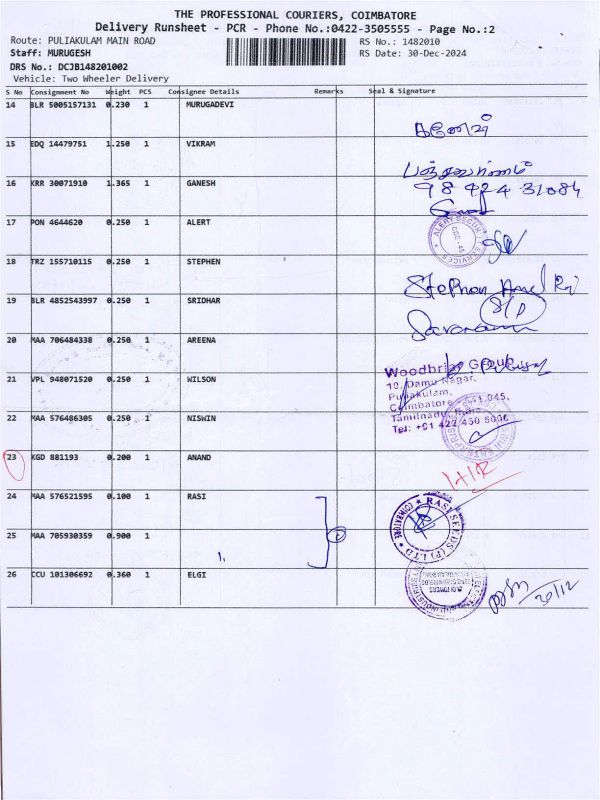 THE PROFESSIONAL COURIERS, COIMBATORE
Delivery Runsheet - PCR - Phone No.:0422-3505555 - Page No.:2
Route: PULIAKULAM MAIN ROAD RS No.: 1482010
Staff: MURUGESH RS Date: 30-Dec-2024
DRS No.: DCJB148201002
Vehicle: Two Wheeler Delivery
S No Consignment No Weight PCS Consignee Details Remarks Seal & Signature
14 BLR 5005157131 0.230 1 MURUGADEVI
15 EDQ 14479751 1.250 1 VIKRAM
16 KRR 30071910 1.365 1 GANESH
98424 31084
17 PON 4644620 0.250 1 ALERT
ALERT SECURITY SERVICES
18 TRZ 155710115 0.250 1 STEPHEN
Stephen
19 BLR 4852543997 0.250 1 SRIDHAR
20 MAA 706484338 0.250 1 AREENA
Woodbriar Group
21 VPL 948071520 0.250 1 WILSON
Nagar,
Puliakulam,
Coimbatore 641 045,
Tamilnadu, India.
22 MAA 576486305 0.250 1 NISWIN
Tel: +91 422 450
23 KGD 881193 0.200 1 ANAND
24 MAA 576521595 0.100 1 RASI
RASI SEEDS (P) LTD
COIMBATORE
25 MAA 705930359 0.900 1
26 CCU 101306692 0.360 1 ELGI
30/12